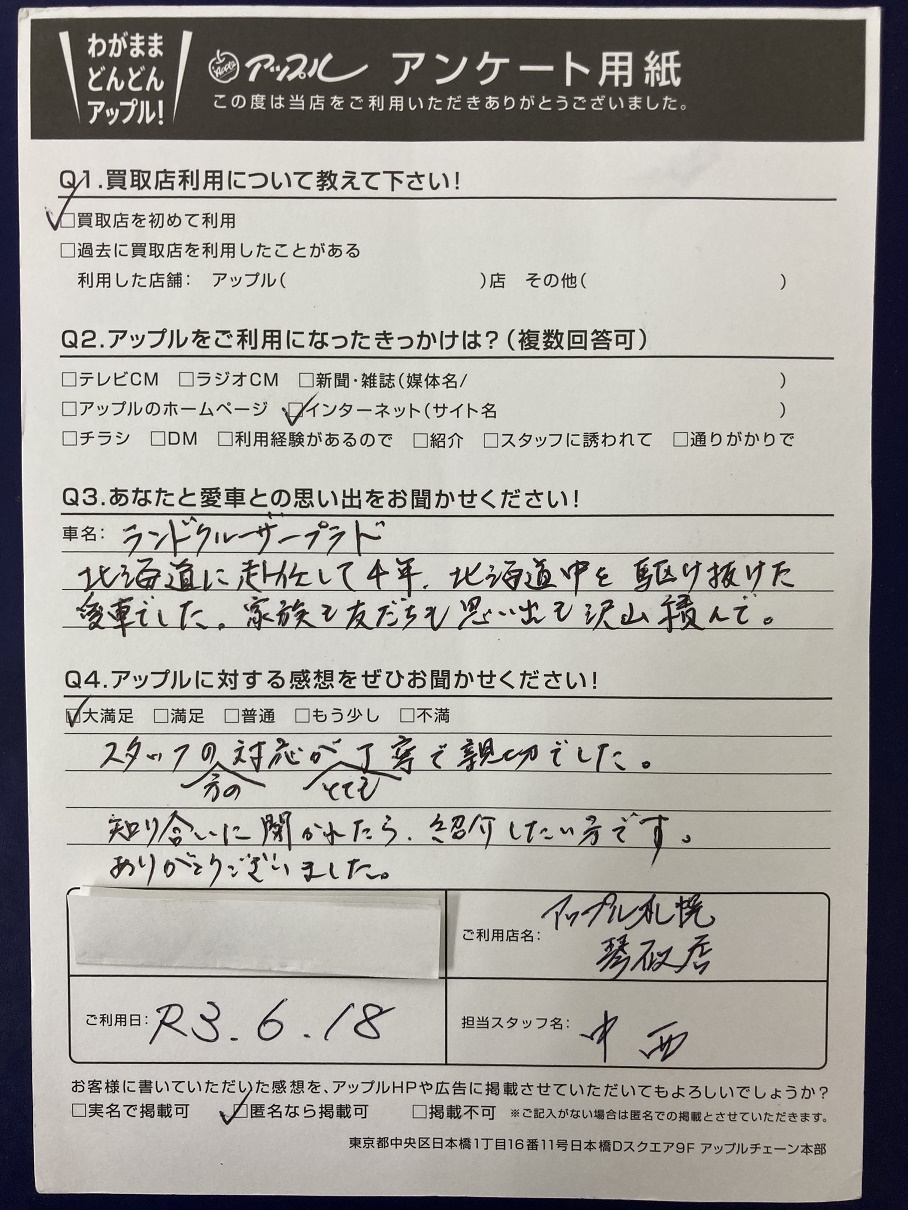 わがまま
どんどん
アップル!
Apple アップル アンケート用紙
この度は当店をご利用いただきありがとうございました。
Q1.買取店利用について教えて下さい!
☑買取店を初めて利用
□過去に買取店を利用したことがある
利用した店舗: アップル( )店 その他( )
Q2.アップルをご利用になったきっかけは?(複数回答可)
□テレビCM □ラジオCM □新聞・雑誌(媒体名/ )
□アップルのホームページ ☑インターネット(サイト名 )
□チラシ □DM □利用経験があるので □紹介 □スタッフに誘われて □通りがかりで
Q3.あなたと愛車との思い出をお聞かせください!
車名: ランドクルーザープラド
北海道に赴任して4年、北海道中を駆け抜けた
愛車でした。家族も友だちも思い出も沢山積んで。
Q4.アップルに対する感想をぜひお聞かせください!
☑大満足 □満足 □普通 □もう少し □不満
スタッフの対応が丁寧で親切でした。
方の とても
知り合いに聞かれたら、紹介したい方です。
ありがとうございました。
ご利用店名: アップル札幌
琴似店
ご利用日: R3.6.18
担当スタッフ名: 中西
お客様に書いていただいた感想を、アップルHPや広告に掲載させていただいてもよろしいでしょうか?
□実名で掲載可 ☑匿名なら掲載可 □掲載不可 ※ご記入がない場合は匿名での掲載とさせていただきます。
東京都中央区日本橋1丁目16番11号日本橋Dスクエア9F アップルチェーン本部